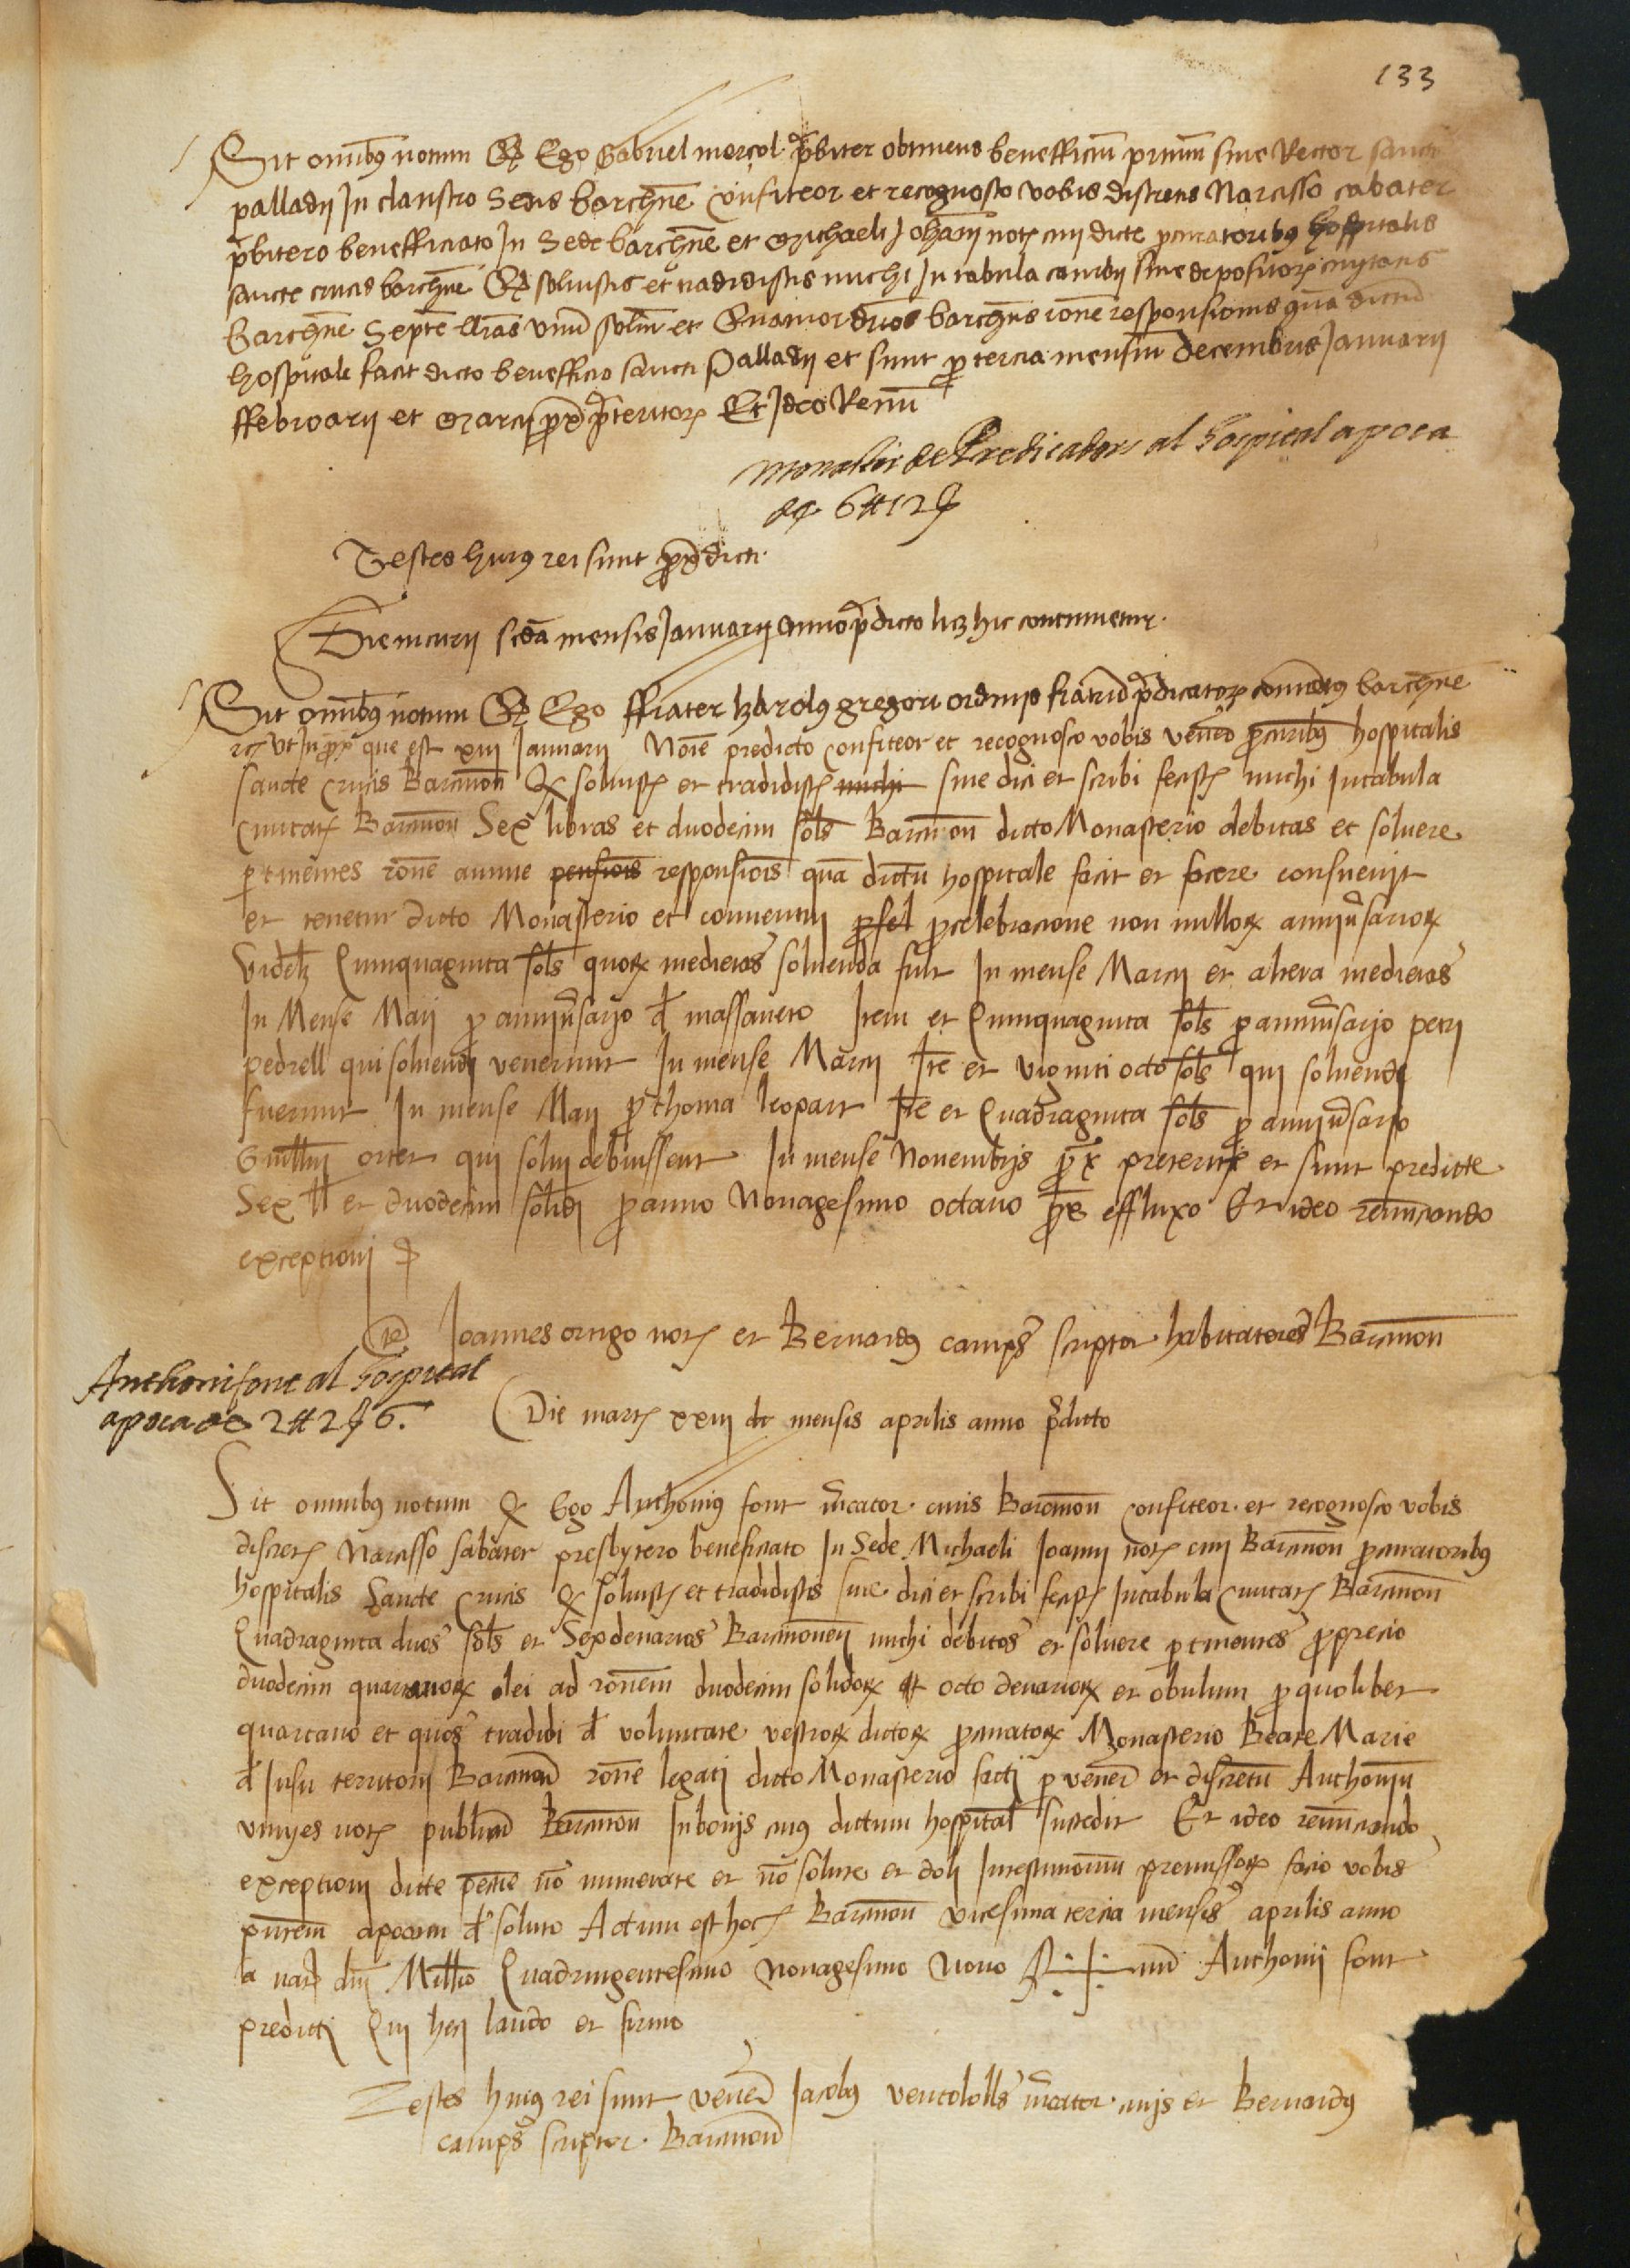 133
Sit omnibus notum Qd Ego Gabriel morçol prbiter obtinens benefficium primum sive Rector sancti
palladij In claustro Sedis barchne Confiteor et recognosco vobis discretis Narcisso cabater
prbitero benefficiato In Sede barchne et Michaeli Johani not civi dicte procuratoribus hospitalis
sancte crucis barchne Qd solvistis et tradidistis michi In tabula cambij sive depositor civitatis
barchne Septe lliras unu solidum et Quatuor duos barchns rone responsionis qua dictum
hospitale facit dicto benefficio sancti Palladij et sunt pro tercia mensium decembris Januarij
ffebroarij et Marcij prox preteritor Et Ideo Renun
monastir de Predicadors al hospital apoca
de 6 ₶ 12 ß
Testes huius rei sunt prox dicti.
Die mercurij scda mensis Januarij anno predicto licz hic continuetur.
Sit omnibus notum Qd Ego ffrater barolus gregori ordinis fratrum predicator conventus barchne
ut In prox que est xiij Januarij Noie predicto confiteor et recognosco vobis vener procuribus hospitalis
sancte crucis Barcinon Q solvist et tradidist michi sive dici et scribi fecist michi In tabula
Civitat Barcinon Sex libras et duodecim sols Barcinon dicto Monasterio debitas et solvere
ptinentes rone annue pensiois responsiois qua dictu hospitale facit et facere consuevit
et tenetur dicto Monasterio et conventui pro sel pro celebracione non nullor anniversarior
Videlz Quinquaginta sols quor medietas solvenda fuit In mense Marcij et altera medietas
In Mense Maij pro anniversario d massaneto Item et Quinquaginta sols pro anniversario petri
pedrell qui solvendi venerunt In mense Marcij Ite et viginti octo sols qui solvendi
fuerunt In mense Maij pro thoma leopart Ite et Quadraginta sols pro anniversario
Guillmi orter qui solvi debuissent In mense Novembris prox preterit et sunt predicte
Sex ll et duodecim solidi pro anno Nonagesimo octavo prox effluxo Et ideo renunciando
exceptioni
te Joannes ortigo not et Bernardus camps scriptor habitatores Barcinon
Anthoni font al hospital
apoca de 2 ₶ 2 ß 6.
Die mart xxiij de mensis aprilis anno predicto
Sit omnibus notum Q Ego Anthonius font mercator civis Barcinon confiteor et recognosco vobis
discret Narcisso sabater presbytero beneficiato In Sede Michaeli Joanni not civi Barcinon procuratoribus
hospitalis Sancte Crucis Q solvist et tradidistis sive dici et scribi fecist In tabula Civitat Barcinon
Quadraginta duos sols et Sex denarios Barcinonen michi debitos et solvere ptinentes pro precio
duodecim quartanor olei ad ronem duodecim solidor et octo denarior et obulum pro quolibet
quartano et quos tradidi d voluntate vestror dictor procurator Monasterio Beate Marie
d Jusu territorij Barcinon rone legati dicto Monasterio facti per vener et discretu Anthoniu
vinyes not publicu Barcinon In bonis cuius dictum hospital succedit Et ideo renunciando
exceptioni dicte pecunie no numerate et no solute et doli In testimoniu premissor facio vobis
presentem apocam d soluto Actum est hoc Barcinon vicesima tercia mensis aprilis anno
a nat dni Millio Quadringentesimo Nonagesimo Nono S+num Anthonij font
predicti Qui hec laudo et firmo
Testes huius rei sunt vener Jacobus ventololls mercator civis et Bernardus
camps scriptor Barcinon